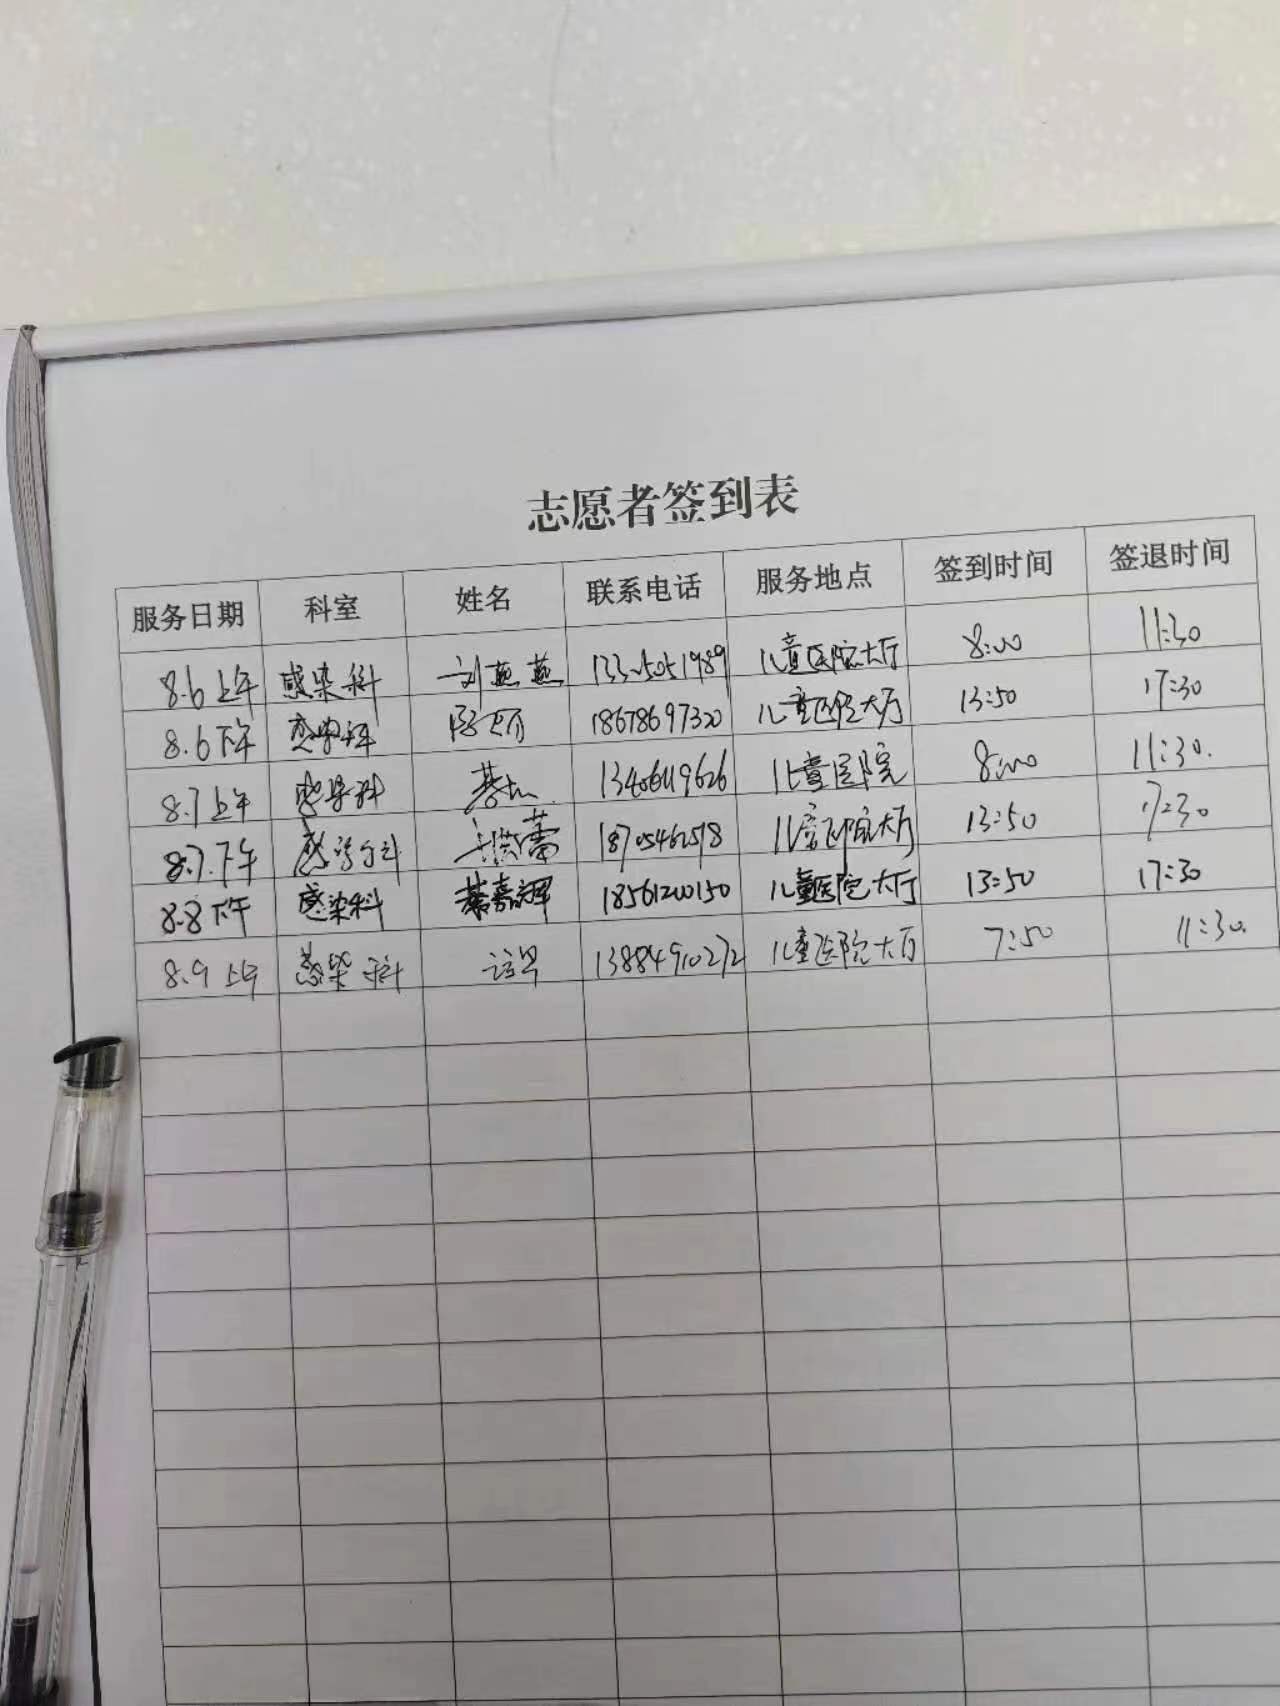 志愿者签到表
服务日期 科室 姓名 联系电话 服务地点 签到时间 签退时间
8.6上午 感染科 刘燕燕 13325051989 儿童医院大厅 8:00 11:30
8.6下午 感染科 18678697320 儿童医院大厅 13:50 17:30
8.7上午 感染科 儿童医院 8:00 11:30.
8.7.下午 感染科 儿童医院大厅 13:50 17:30
8.8下午 感染科 18561200150 儿童医院大厅 13:50 17:30
8.9上午 感染科 13884910272 儿童医院大厅 7:50 11:30.